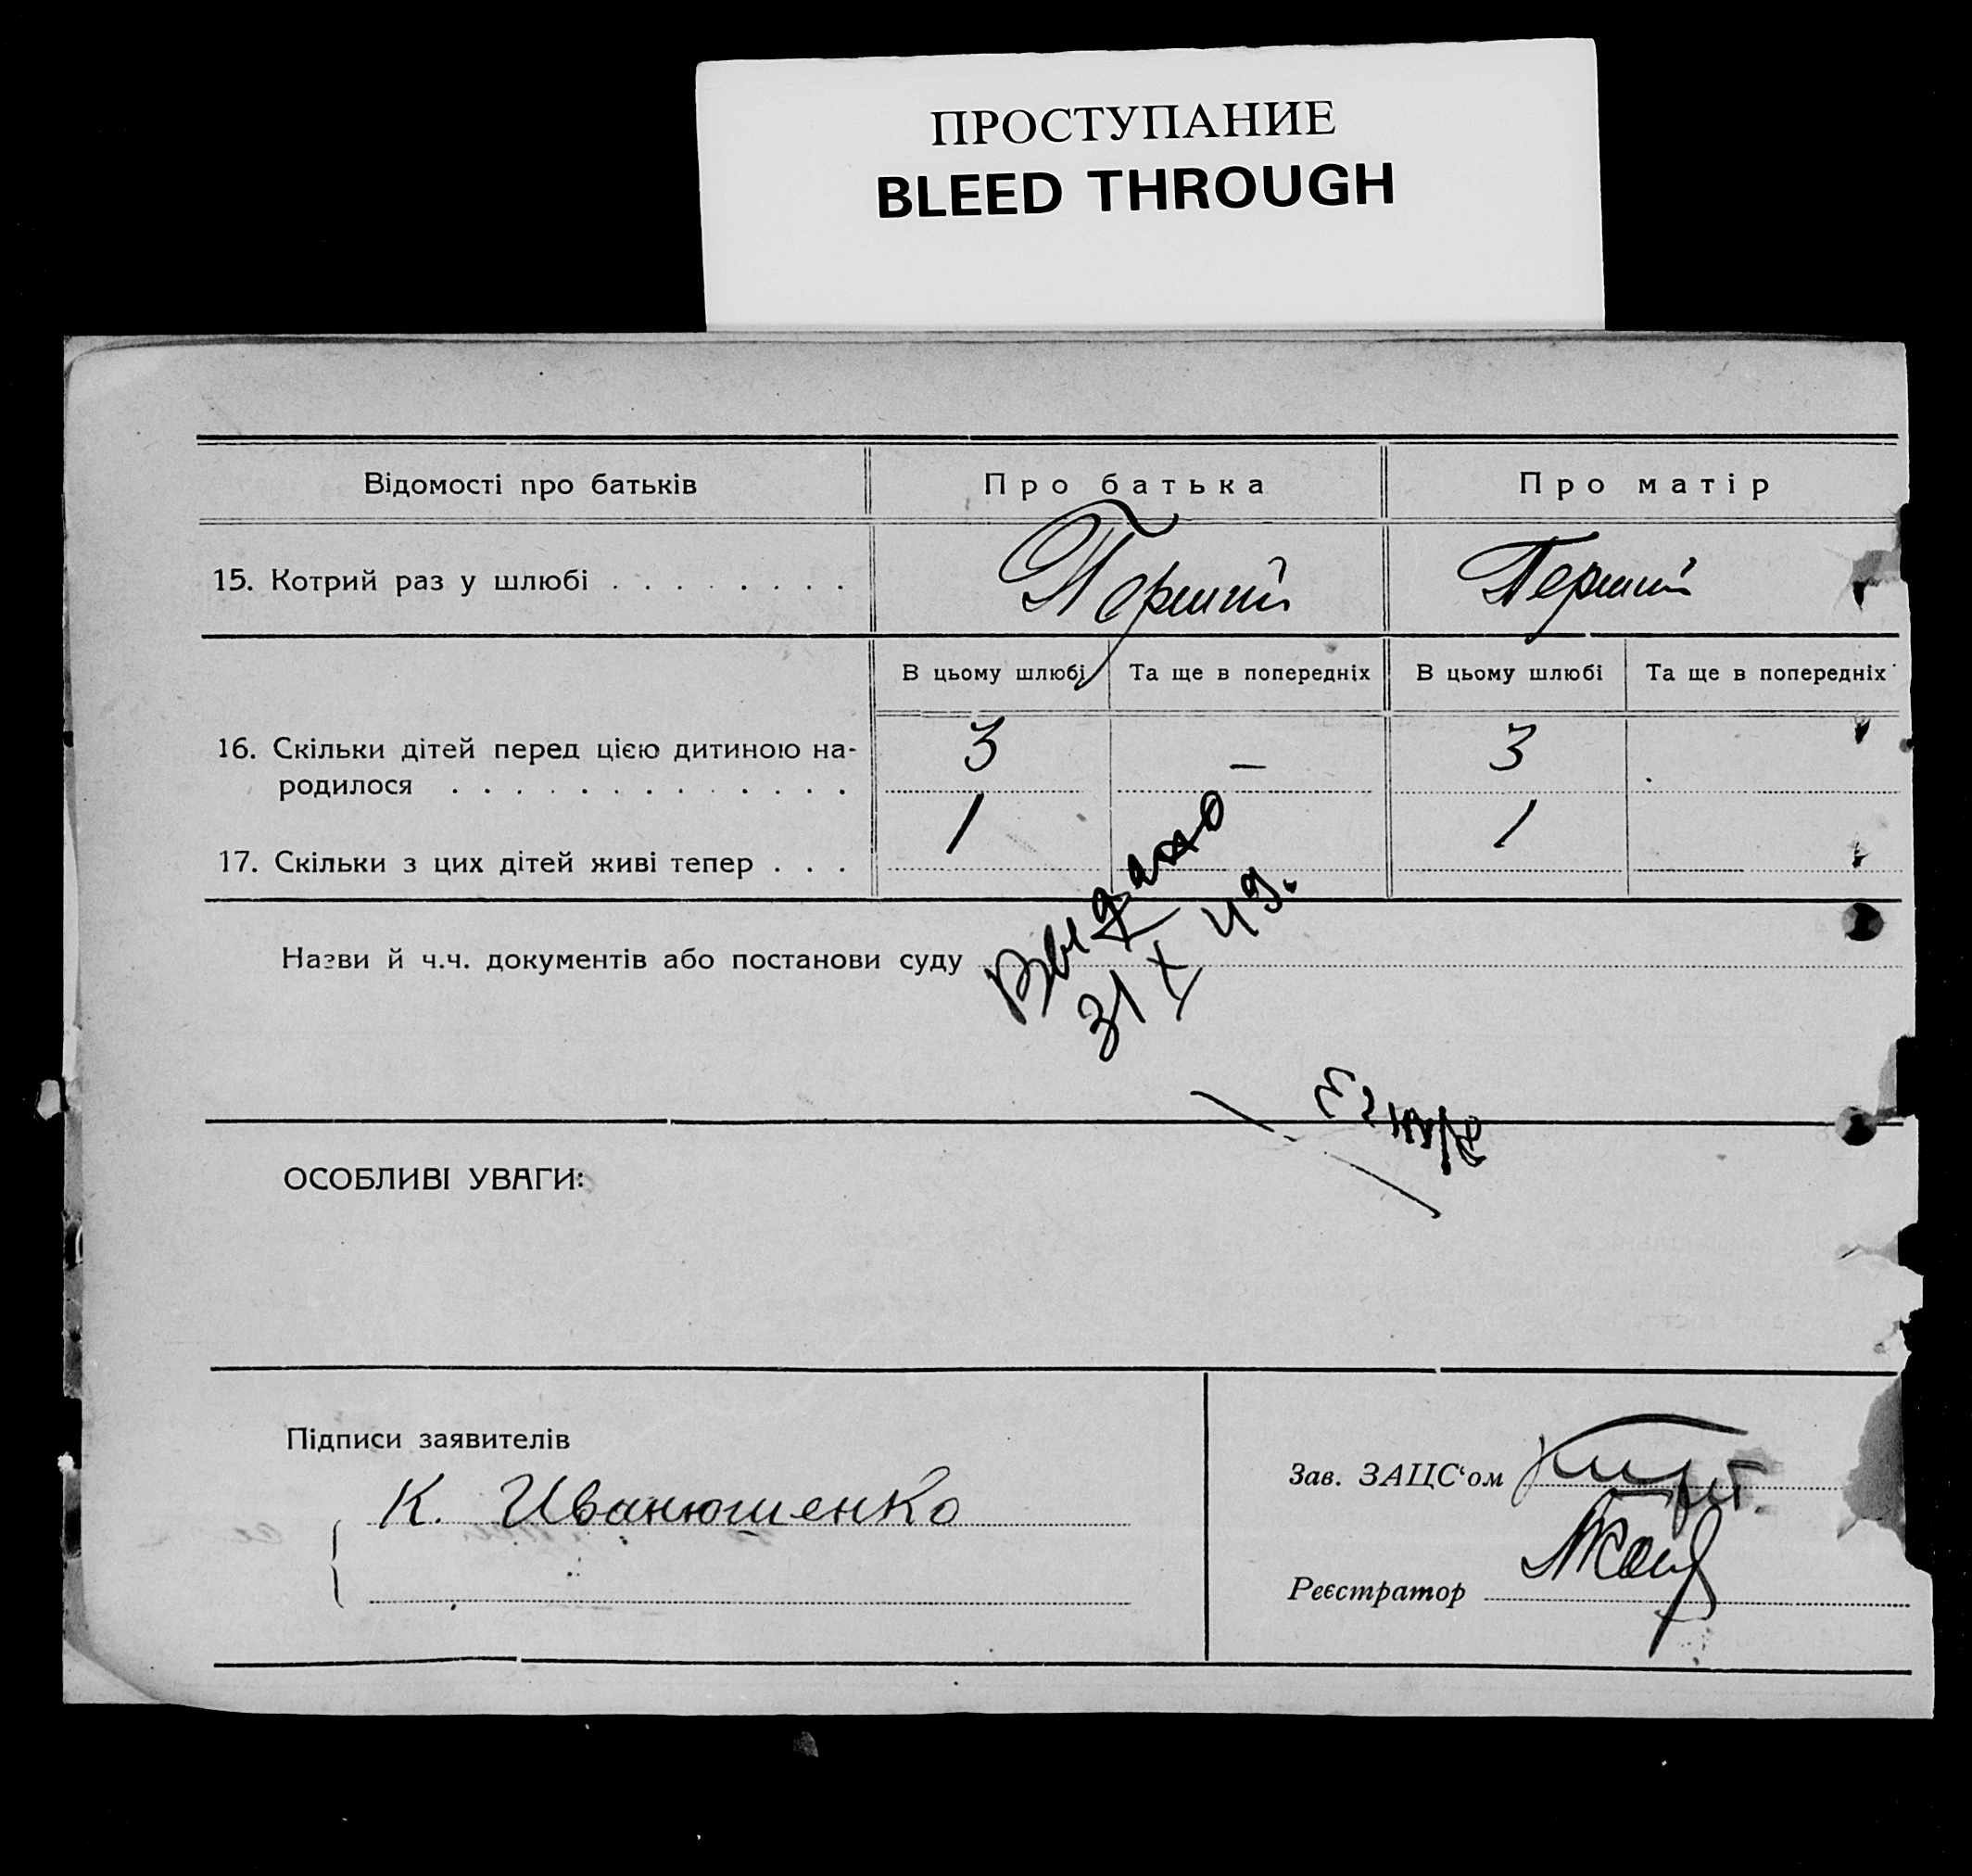 ПРОСТУПАНИЕ
BLEED THROUGH
Відомості про батьків Про батька Про матір
15. Котрий раз у шлюбі . . . . . . . . Перший Перший
В цьому шлюбі Та ще в попередніх В цьому шлюбі Та ще в попередніх
16. Скільки дітей перед цією дитиною на- 3 — 3
родилося . . . . . . . . . . . . .
17. Скільки з цих дітей живі тепер . . . 1 1
Выдано
31 X 49.
Назви й ч.ч. документів або постанови суду
ОСОБЛИВІ УВАГИ:
Підписи заявителів
К. Иванюшенко
Зав. ЗАЦС‘ом
Реєстратор